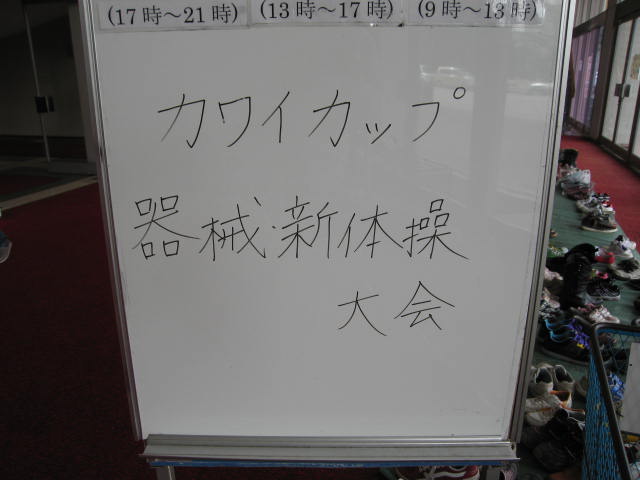 (17時～21時) (13時～17時) (9時～13時)
カワイカップ
器械・新体操
大会